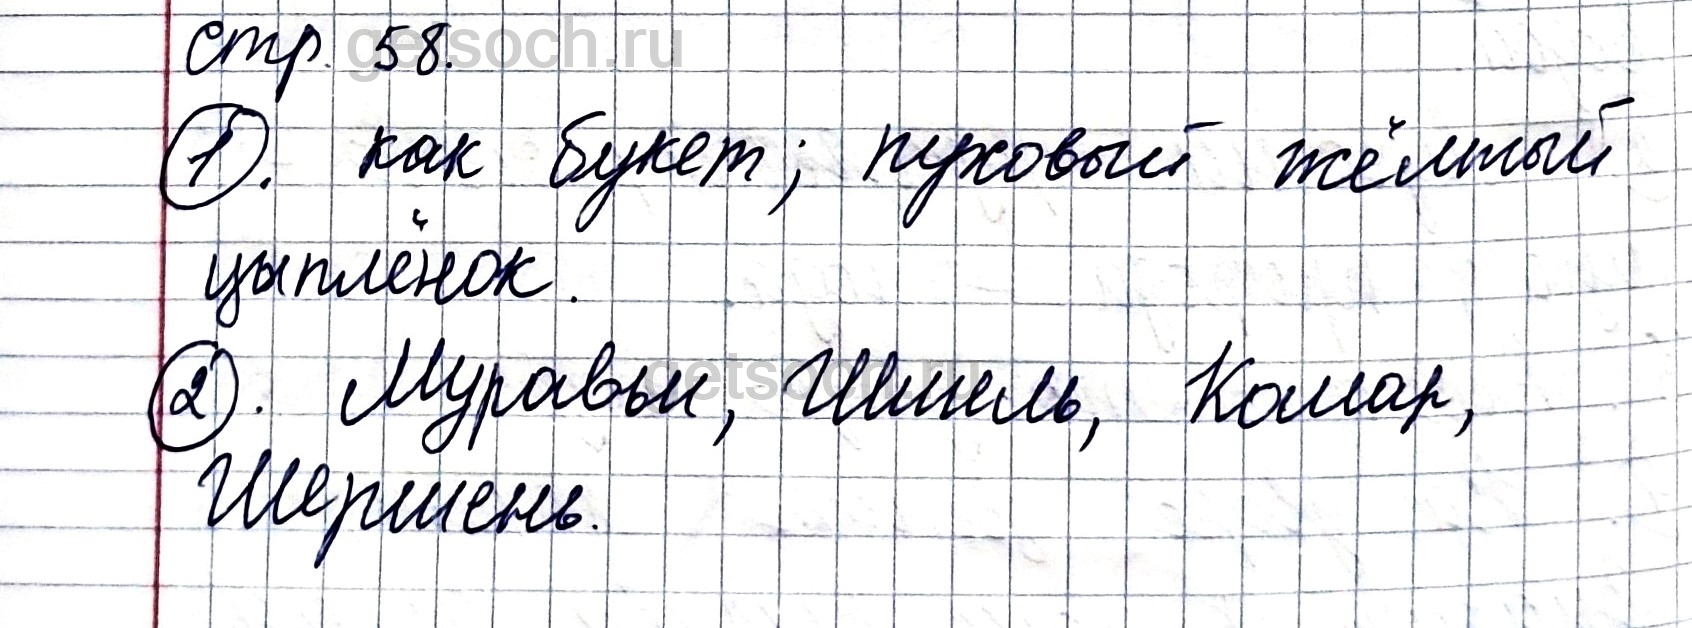 стр. 58.
1. как букет; пуховый жёлтый
цыплёнок.
2. Муравьи, Шмель, Комар,
Шершень.
getsoch.ru
getsoch.ru